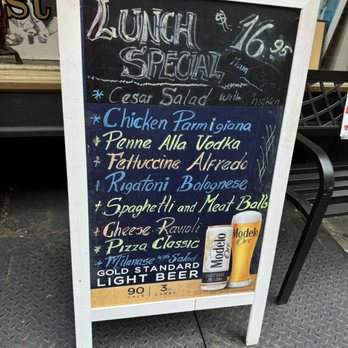 LUNCH
SPECIAL
16.95
11am
* Cesar Salad with chicken
* Chicken Parmigiana
* Penne Alla Vodka
+ Fettuccine Alfredo
+ Rigatoni Bolognese
+ Spaghetti and Meat Balls
+ Cheese Ravioli
* Pizza Classic
* Milanase with Salad
GOLD STANDARD
LIGHT BEER
90 CALS
3g CARBS
Modelo
Oro
Modelo
Oro
st